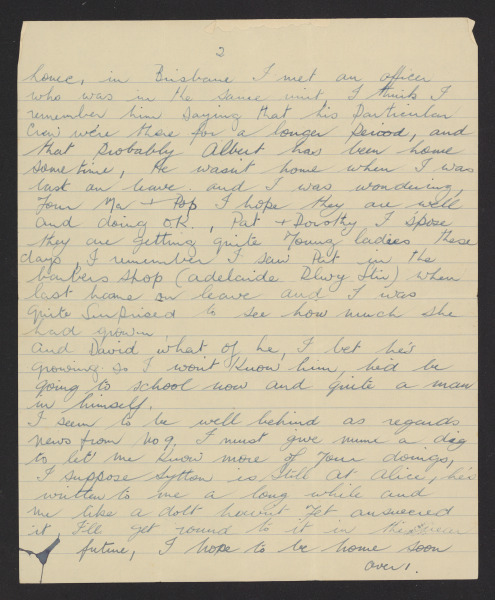 2
home, in Brisbane I met an officer
who was in the same unit I think I
remember him saying that his particular
Crew were there for a longer period, and
that probably Albert has been home
sometime, He wasn't home when I was
last on leave. and I was wondering,
Your Ma + Pop I hope they are well
and doing o.k., Pat + Dorothy I spose
they are getting quite Young ladies these
days, I remember I saw Pat in the
barbers shop (adelaide Rlwy Stn) when
last home on leave and I was
quite Surprised to see how much she
had grown,
and David what of he, I bet he's
growing so I won't Know him, he'd be
going to school now and quite a man
in himself.
I seem to be well behind as regards
news from No 9, I must give mum a dig
to let me know more of your doings,
I suppose Sytton is still at Alice, he's
written to me a long while and
me like a dolt havent yet answered
it I'll get round to it in the near
future, I hope to be home soon
over!